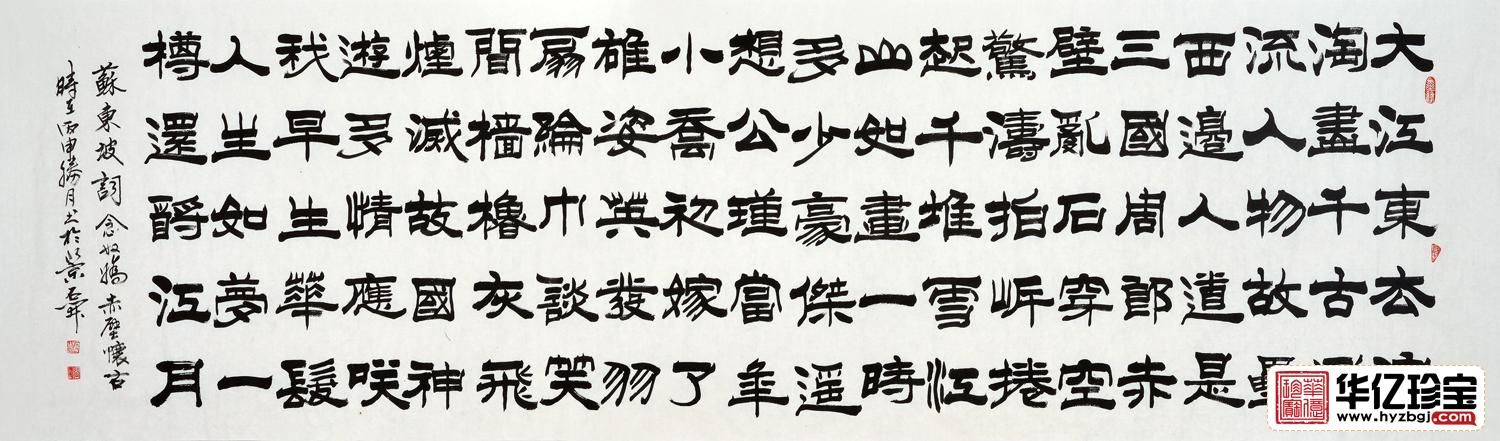 大江東去
淘盡千古
流人物故
西邊人道是
三國周郎赤
壁亂石穿空
驚濤拍岸捲
起千堆雪江
山如畫一時
多少豪傑遥
想公瑾當年
小喬初嫁了
雄姿英發羽
扇綸巾談笑
間檣櫓灰飛
煙滅故國神
遊多情應咲
我早生華髮
人生如夢一
樽還酹江月
蘇東坡詞念奴嬌赤壁懷古
時在丙申勝月書於景
华亿珍宝
www.hyzbgj.com